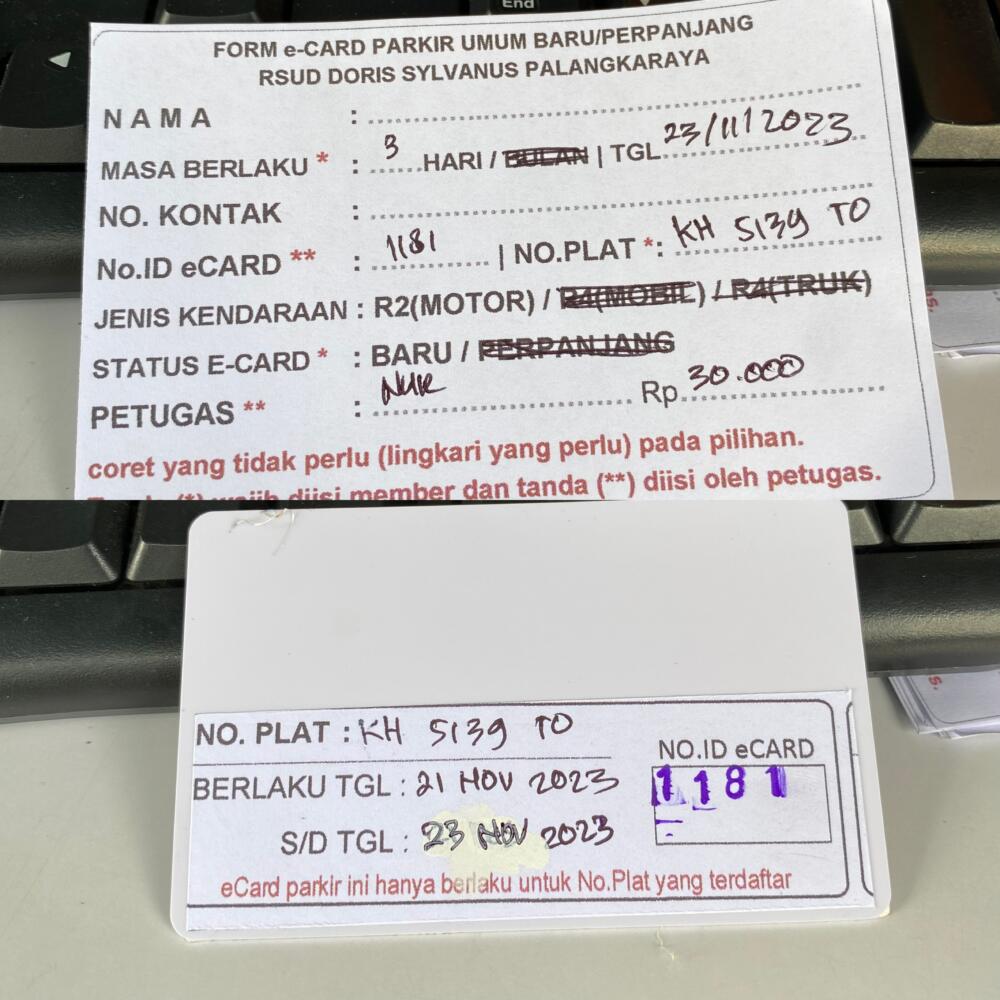 End
FORM e-CARD PARKIR UMUM BARU/PERPANJANG
RSUD DORIS SYLVANUS PALANGKARAYA
NAMA :
MASA BERLAKU * : 3 HARI / BULAN | TGL 23/11/2023
NO. KONTAK :
No.ID eCARD ** : 1181 | NO.PLAT *: KH 5139 TO
JENIS KENDARAAN : R2(MOTOR) / R4(MOBIL) / R4(TRUK)
STATUS E-CARD * : BARU / PERPANJANG
PETUGAS ** : NUR Rp 30.000
coret yang tidak perlu (lingkari yang perlu) pada pilihan.
Tanda (*) wajib diisi member dan tanda (**) diisi oleh petugas.
NO. PLAT : KH 5139 TO
NO.ID eCARD
1181
BERLAKU TGL : 21 NOV 2023
S/D TGL : 23 NOV 2023
eCard parkir ini hanya berlaku untuk No.Plat yang terdaftar